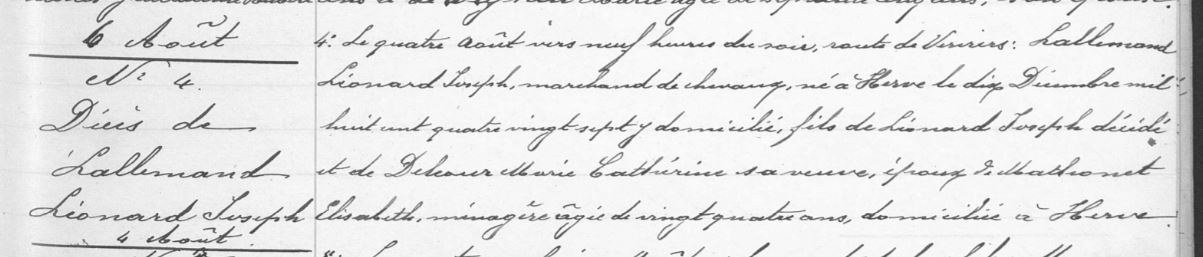 6 Août
N° 4.
Décès de
Lallemand
Léonard Joseph
4 Août.
4° Le quatre août vers neuf heures du soir, route de Verviers: Lallemand
Léonard Joseph, marchand de chevaux, né à Herve le dix Décembre mil
huit cent quatre vingt sept y domicilié, fils de Léonard Joseph décédé
et de Delcour Marie Cathérine sa veuve, époux de Mathonet
Elisabeth, ménagère âgée de vingt quatre ans, domiciliée à Herve